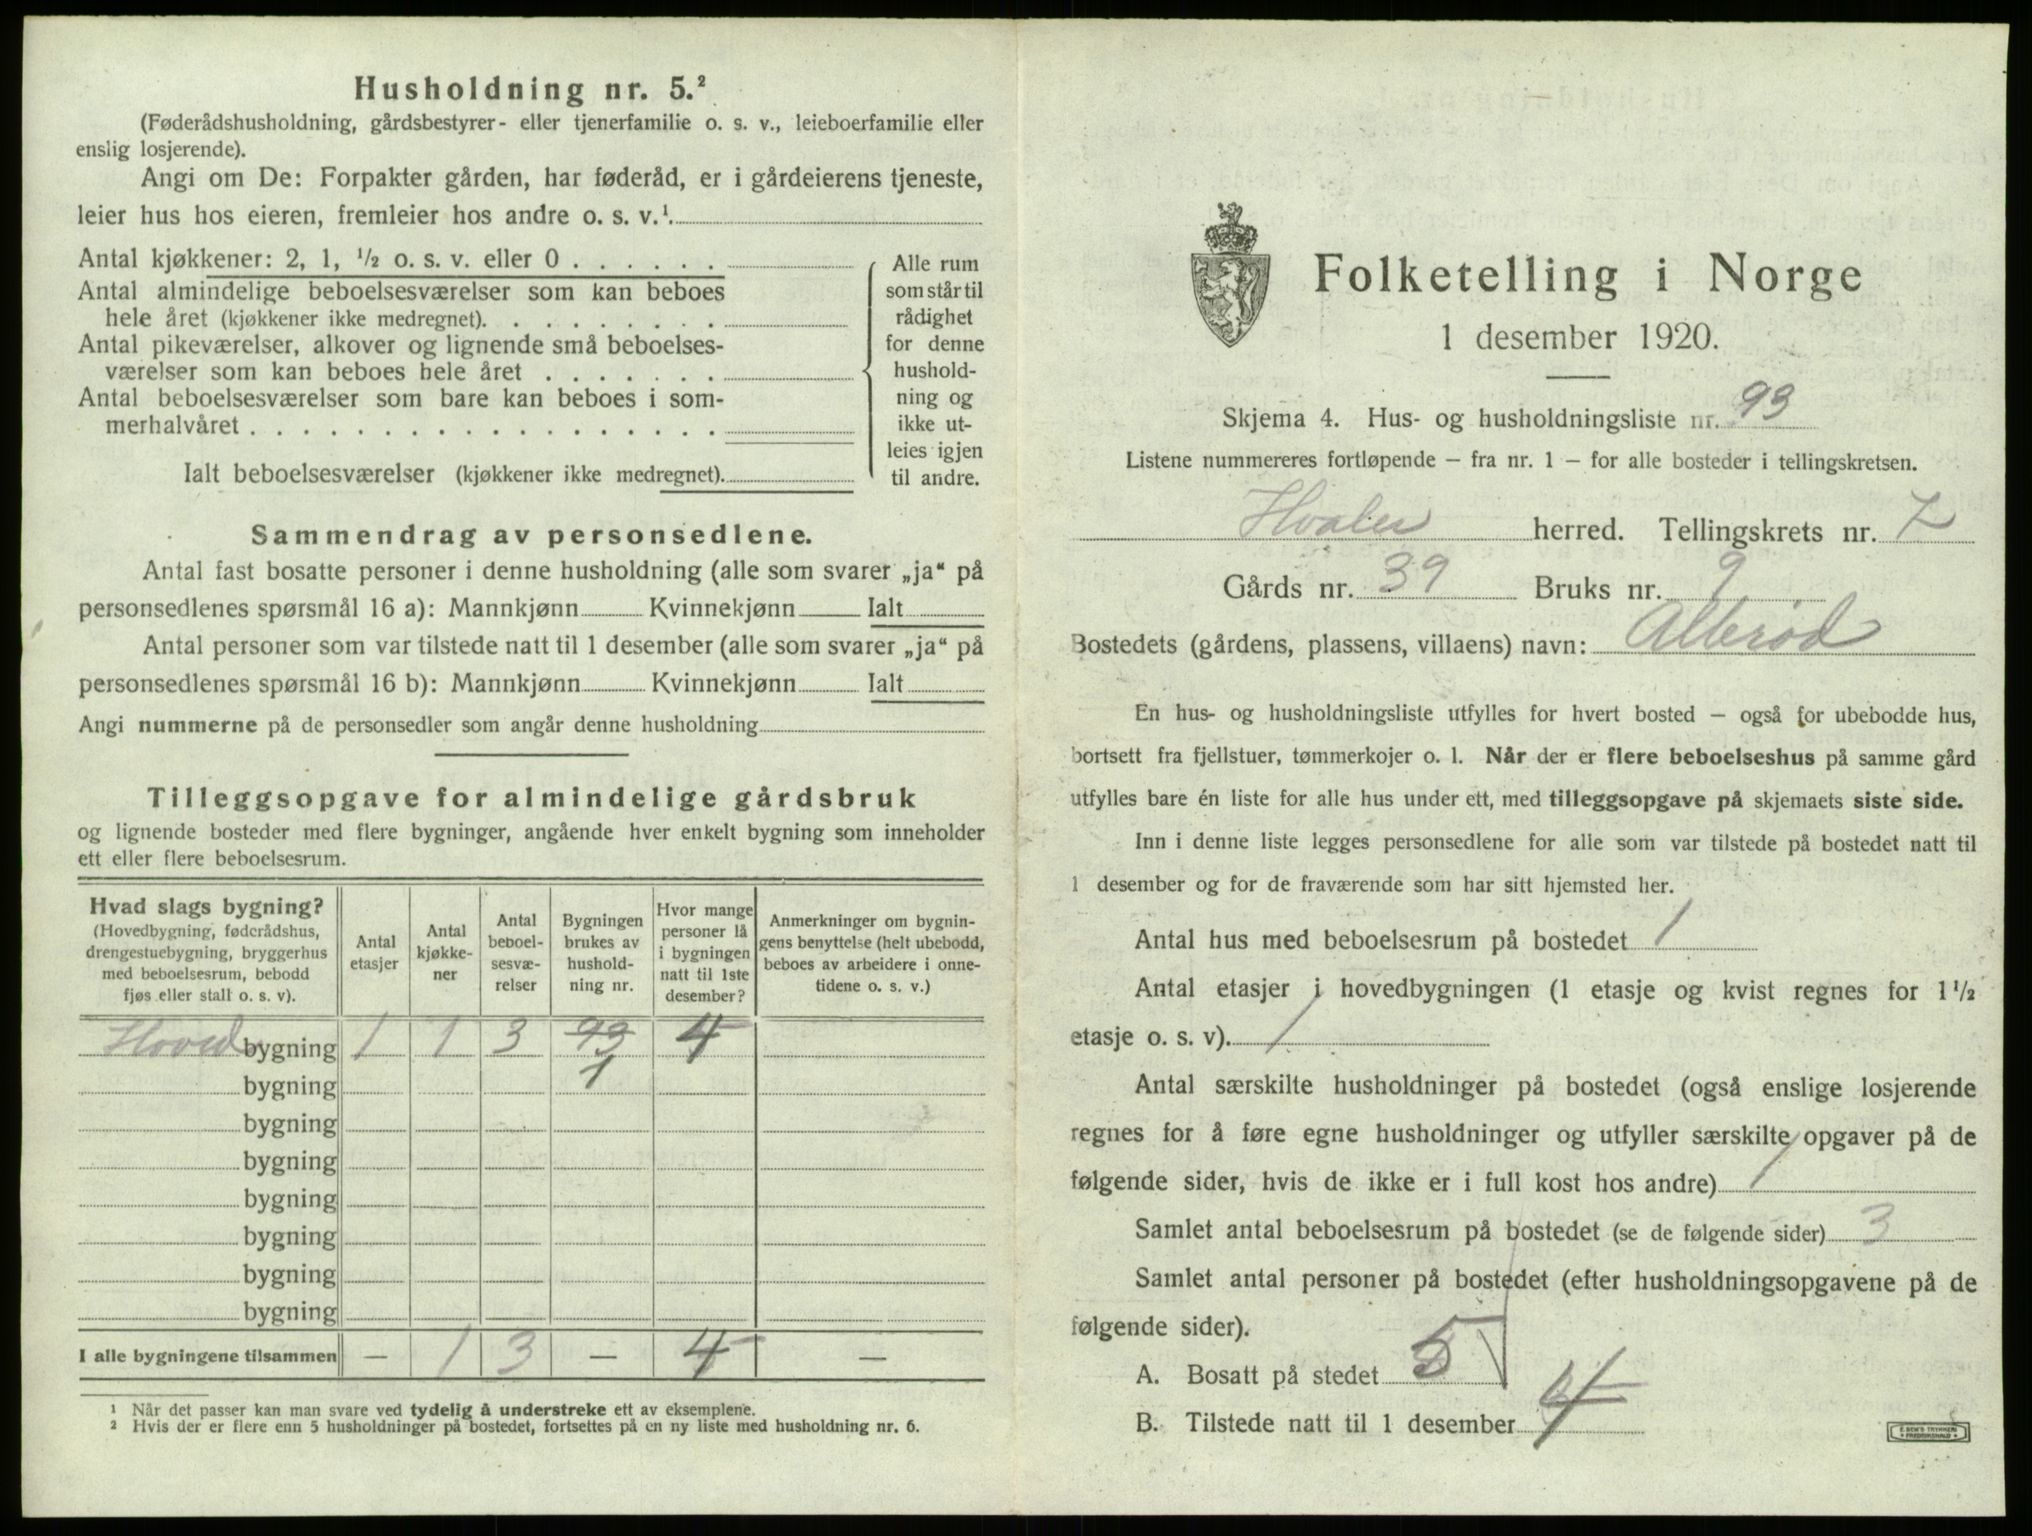 Husholdning nr. 5.²
(Føderådshusholdning, gårdsbestyrer- eller tjenerfamilie o. s. v., leieboerfamilie eller
enslig losjerende).
Angi om De: Forpakter gården, har føderåd, er i gårdeierens tjeneste,
leier hus hos eieren, fremleier hos andre o. s. v.¹.
Antal kjøkkener: 2, 1, ½ o. s. v. eller 0 . . . . . .
Antal almindelige beboelsesværelser som kan beboes
hele året (kjøkkener ikke medregnet). . . . . . . . .
Antal pikeværelser, alkover og lignende små beboelses-
værelser som kan beboes hele året . . . . . . .
Antal beboelsesværelser som bare kan beboes i som-
merhalvåret . . . . . . . . . . . . . . . . . .
Ialt beboelsesværelser (kjøkkener ikke medregnet).
Alle rum
som står til
rådighet
for denne
hushold-
ning og
ikke ut-
leies igjen
til andre.
Sammendrag av personsedlene.
Antal fast bosatte personer i denne husholdning (alle som svarer „ja" på
personsedlenes spørsmål 16 a): Mannkjønn Kvinnekjønn Ialt
Antal personer som var tilstede natt til 1 desember (alle som svarer „ja" på
personsedlenes spørsmål 16 b): Mannkjønn Kvinnekjønn Ialt
Angi nummerne på de personsedler som angår denne husholdning
Tilleggsopgave for almindelige gårdsbruk
og lignende bosteder med flere bygninger, angående hver enkelt bygning som inneholder
ett eller flere beboelsesrum.
Hvad slags bygning?
(Hovedbygning, føderådshus,
drengestuebygning, bryggerhus
med beboelsesrum, bebodd
fjøs eller stall o. s. v).
Antal
etasjer
Antal
kjøkke-
ner
Antal
beboel-
sesvæ-
relser
Bygningen
brukes av
hushold-
ning nr.
Hvor mange
personer lå
i bygningen
natt til 1ste
desember?
Anmerkninger om bygnin-
gens benyttelse (helt ubebodd,
beboes av arbeidere i onne-
tidene o. s. v.)
Hoved bygning 1 1 3 93 4
bygning 1
bygning
bygning
bygning
bygning
bygning
bygning
I alle bygningene tilsammen — 1 3 — 4 —
¹ Når det passer kan man svare ved tydelig å understreke ett av eksemplene.
² Hvis der er flere enn 5 husholdninger på bostedet, fortsettes på en ny liste med husholdning nr. 6.
Folketelling i Norge
1 desember 1920.
Skjema 4. Hus- og husholdningsliste nr. 93
Listene nummereres fortløpende – fra nr. 1 – for alle bosteder i tellingskretsen.
Hvaler herred. Tellingskrets nr. 7
Gårds nr. 39 Bruks nr. 9
Bostedets (gårdens, plassens, villaens) navn: Alberød
En hus- og husholdningsliste utfylles for hvert bosted – også for ubebodde hus,
bortsett fra fjellstuer, tømmerkojer o. l. Når der er flere beboelseshus på samme gård
utfylles bare én liste for alle hus under ett, med tilleggsopgave på skjemaets siste side.
Inn i denne liste legges personsedlene for alle som var tilstede på bostedet natt til
1 desember og for de fraværende som har sitt hjemsted her.
Antal hus med beboelsesrum på bostedet 1
Antal etasjer i hovedbygningen (1 etasje og kvist regnes for 1½
etasje o. s. v). 1
Antal særskilte husholdninger på bostedet (også enslige losjerende
regnes for å føre egne husholdninger og utfyller særskilte opgaver på de
følgende sider, hvis de ikke er i full kost hos andre) 1
Samlet antal beboelsesrum på bostedet (se de følgende sider) 3
Samlet antal personer på bostedet (efter husholdningsopgavene på de
følgende sider).
A. Bosatt på stedet 5
B. Tilstede natt til 1 desember 4